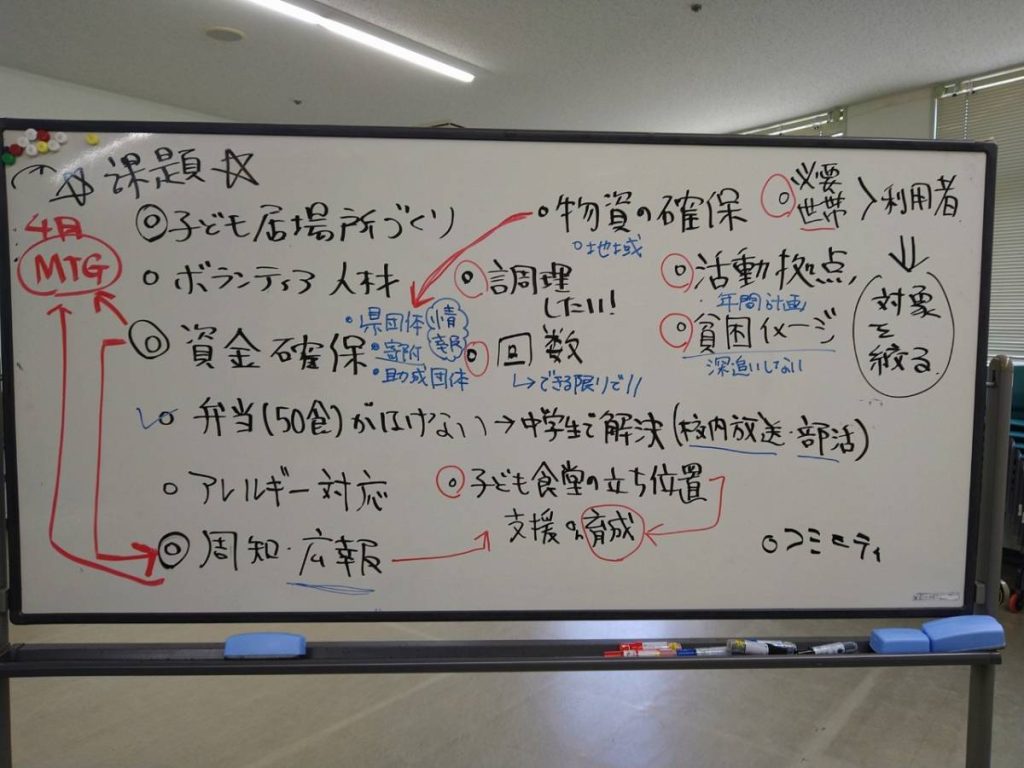 ☆課題☆
4月
MTG
◎子ども居場所づくり
○ボランティア人材
◎資金確保
・県団体
・寄附
・助成団体
情報
○物資の確保
○地域
○調理
したい!
○回数
↳できる限りで!!
○必要
世帯
〉利用者
⇓
対象
を
絞る
○活動拠点
・年間計画
○貧困イメージ
深追いしない
○弁当(50食)がはけない→中学生で解決(校内放送・部活)
○アレルギー対応
○子ども食堂の立ち位置
支援 育成
◎周知・広報
○コミュニティ